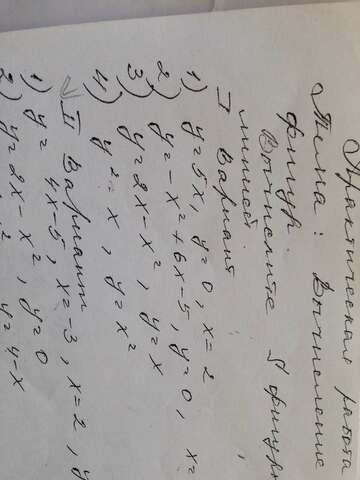 Практическая работа
Тема: Вычисление
фигур.
Вычислите S фигуры
линией.
I Вариант
1) y=5x, y=0, x=2
2) y=-x²+6x-5, y=0, x=
3) y=2x-x², y=x
4) y²=x, y=x²
II Вариант
1) y=4x-5, x=-3, x=2, y
2) y=2x-x², y=0
y=4-x